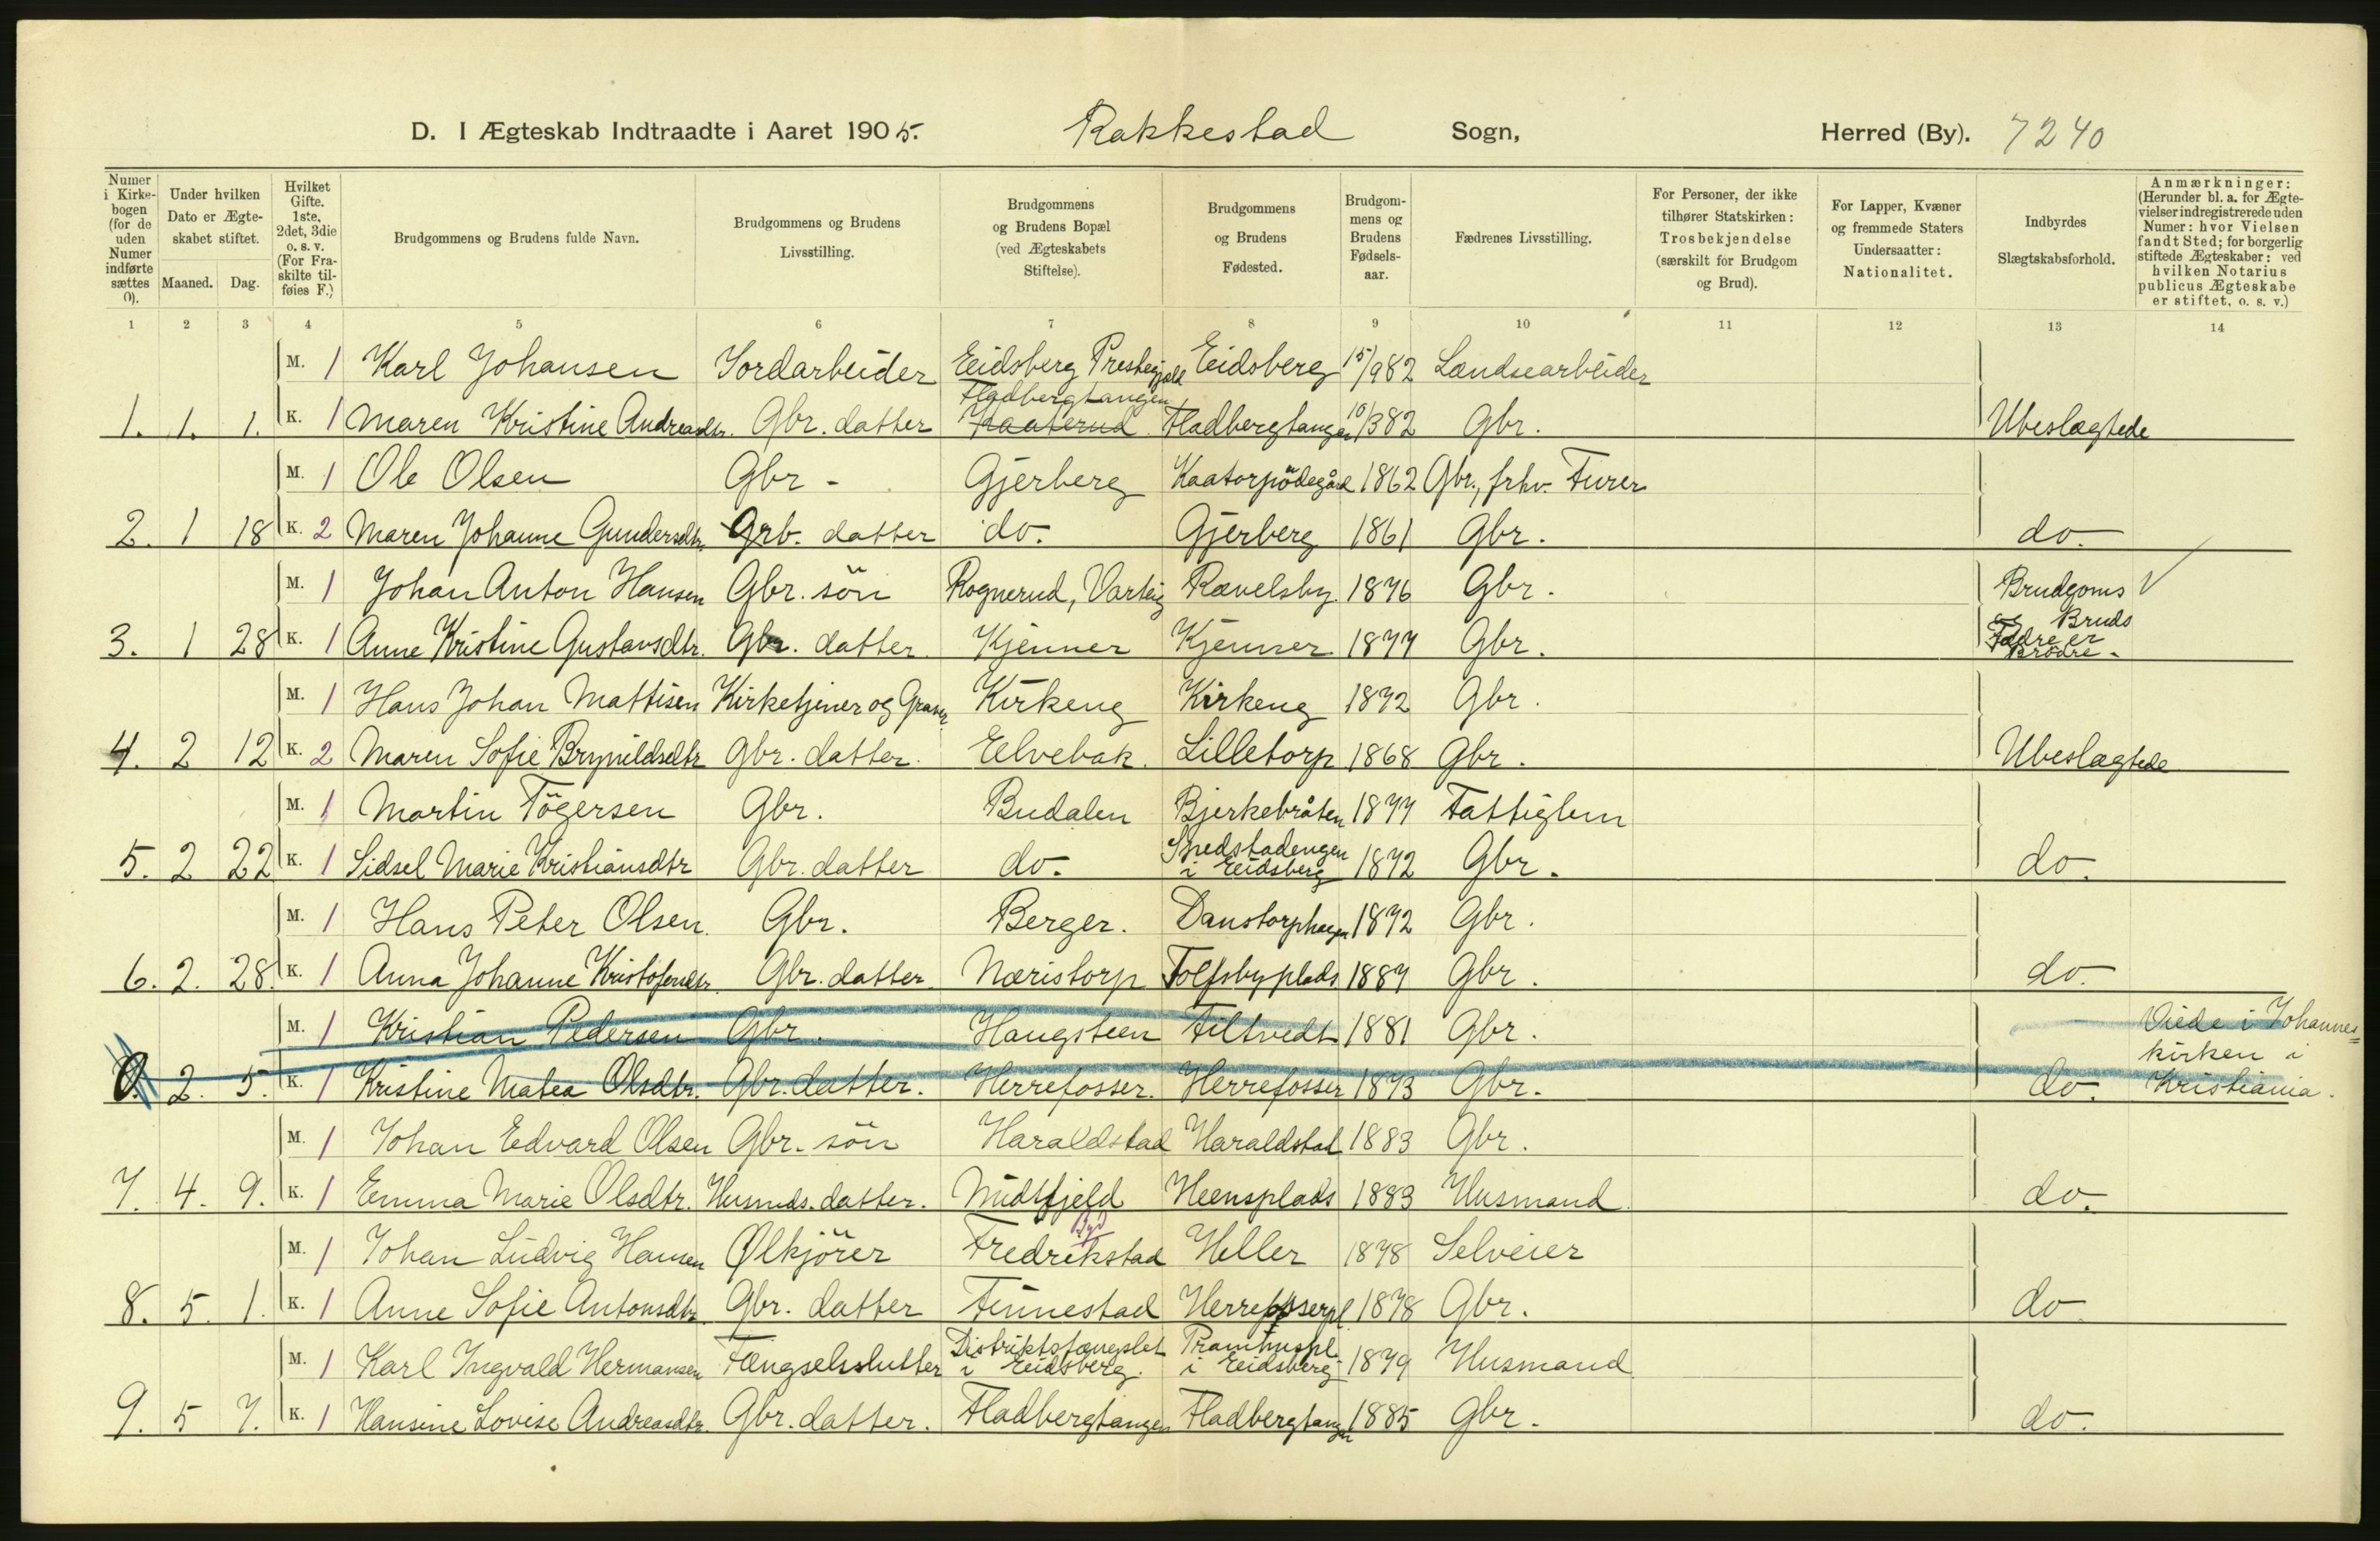 D. I Ægteskab Indtraadte i Aaret 1905. Rakkestad Sogn, Herred (By). 7240
Numer i Kirkebogen (for de uden Numer indførte sættes 0).
Under hvilken Dato er Ægteskabet stiftet.
Maaned. Dag.
Hvilket Gifte. 1ste, 2det, 3die o. s. v. (For Fraskilte tilføies F.)
Brudgommens og Brudens fulde Navn.
Brudgommens og Brudens Livsstilling.
Brudgommens og Brudens Bopæl (ved Ægteskabets Stiftelse).
Brudgommens og Brudens Fødested.
Brudgommens og Brudens Fødselsaar.
Fædrenes Livsstilling.
For Personer, der ikke tilhører Statskirken: Trosbekjendelse (særskilt for Brudgom og Brud).
For Lapper, Kvæner og fremmede Staters Undersaatter: Nationalitet.
Indbyrdes Slægtskabsforhold.
Anmærkninger: (Herunder bl. a. for Ægtevielser indregistrerede uden Numer: hvor Vielsen fandt Sted; for borgerlig stiftede Ægteskaber: ved hvilken Notarius publicus Ægteskabe er stiftet, o. s. v.)
1 2 3 4 5 6 7 8 9 10 11 12 13 14
M. 1 Karl Johansen Jordarbeider Eidsberg Prestegjæld Eidsberg 15/9 82 Landsearbeider
Fladbergtangen
1. 1. 1. K. 1 Maren Kristine Andreasdtr. Gbr. datter Fladbergtangen 10/3 82 Gbr. Ubeslægtede
M. 1 Ole Olsen Gbr - Gjerberg Kaatorpödegård 1862 Gbr., frhv. Furer
2. 1 18 K. 2 Maren Johanne Gundersdtr. Grb. datter do. Gjerberg 1861 Gbr. do.
M. 1 Johan Anton Hansen Gbr. sön Rognerud, Varteig Rævelsby 1876 Gbr. Brudgoms V
og Bruds
3. 1 28 K. 1 Anne Kristine Gustavsdtr. Gbr. datter Kjenner Kjenner 1877 Gbr. Fædre er
Brödre.
M. 1 Hans Johan Mattisen Kirketjener og Graver Kirkeng Kirkeng 1872 Gbr.
4. 2 12 K. 2 Maren Sofie Brynildsdtr Gbr. datter. Elvebak. Lilletorp 1868 Gbr. Ubeslægtede
M. 1 Martin Tögersen Gbr. Budalen Bjerkebråten 1877 Fattiglem
Spedstadengen
5. 2 22 K. 1 Sidsel Marie Kristiansdtr Gbr. datter do. i Eidsberg 1872 Gbr. do.
M. 1 Hans Peter Olsen. Gbr. Berger. Danstorphagen 1872 Gbr.
6. 2. 28. K. 1 Anna Johanne Kristofersdtr. Gbr. datter Næristorp Tolfsbyplads 1887 Gbr. do.
M. 1 Kristian Pedersen Gbr. Haugsteen Filtvedt 1881 Gbr. Viede i Johannes=
kirken i
0. 2. 5. K. 1 Kristine Matea Olsdtr. Gbr. datter. Herrefosser. Herrefosser 1873 Gbr. do. Kristiania.
M. 1 Johan Edvard Olsen Gbr. sön Haraldstad Haraldstad 1883 Gbr.
7. 4. 9. K. 1 Emma Marie Olsdtr. Husmds. datter. Midtfjeld Heensplads 1883 Husmand. do.
M. 1 Johan Ludvig Hansen Ølkjörer Fredrikstad Heller 1878 Selveier
8. 5. 1. K. 1 Anne Sofie Antonsdtr. Gbr. datter Finnestad Herrefosserpl 1878 Gbr. do
Distriktsfængslet Pramhuspl.
M. 1 Karl Ingvald Hermansen Fængselsslutter i Eidsberg. i Eidsberg 1879 Husmand
9. 5 7. K. 1 Hansine Lovise Andreasdtr. Gbr. datter. Fladbergtangen Fladbergtangen 1885 Gbr. do.